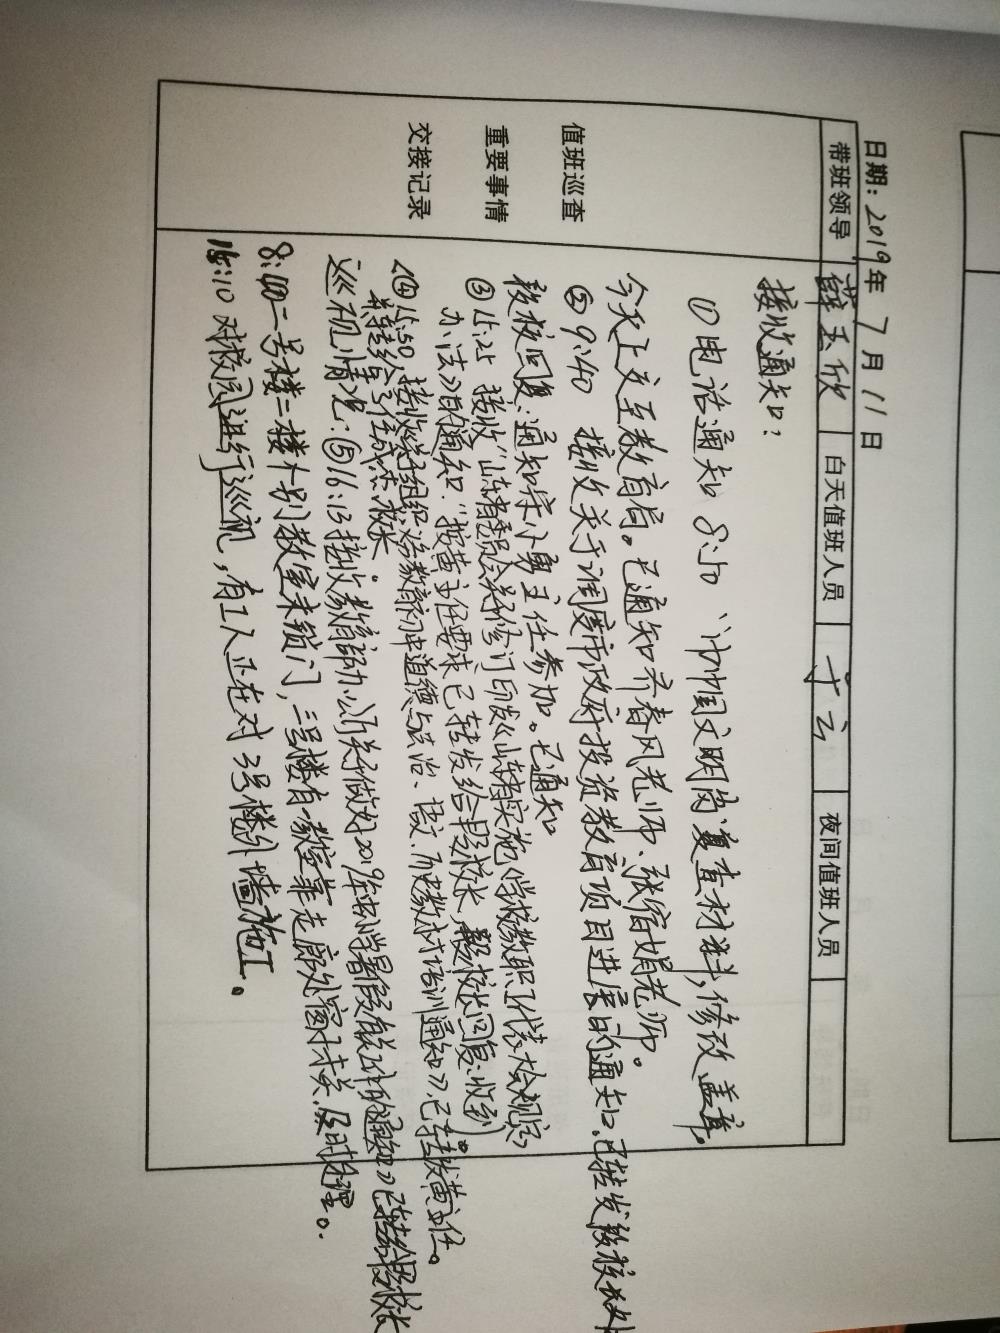 日期：2019年7月11日
带班领导 薛玉欣 白天值班人员 于云 夜间值班人员
值班巡查
重要事情
交接记录
接收通知：
①电话通知 8:50 ，巾帼文明岗复查材料，修改盖章，
今天上交至教育局。已通知齐春风老师、张宿娟老师。
② 9:40 接收关于调度市政府投资教育项目进展的通知，已转发
校回复：通知宗小勇主任参加。已通知
③ 15:25 接收“山东省委员会关于修订印发《山东省实施《学校教职工代表大会规定》
办法》的通知.”按黄主任要求已转发给 校长， 校长回复：收到
④ 15:50 接收 教育部初中道德与法治、语文、历史教材培训通知》，已转发黄主任。
并转给了任成杰校长。
巡视情况：⑤16:13接收教育部办公厅关于做好2019年中小学暑假 工作的通知》已转给 校长
8:40二号楼二楼个别教室未锁门，三号楼有一教室靠走廊处窗未关，及时处理。
16:10 对校园进行巡视，有工人正在对3号楼外墙施工。